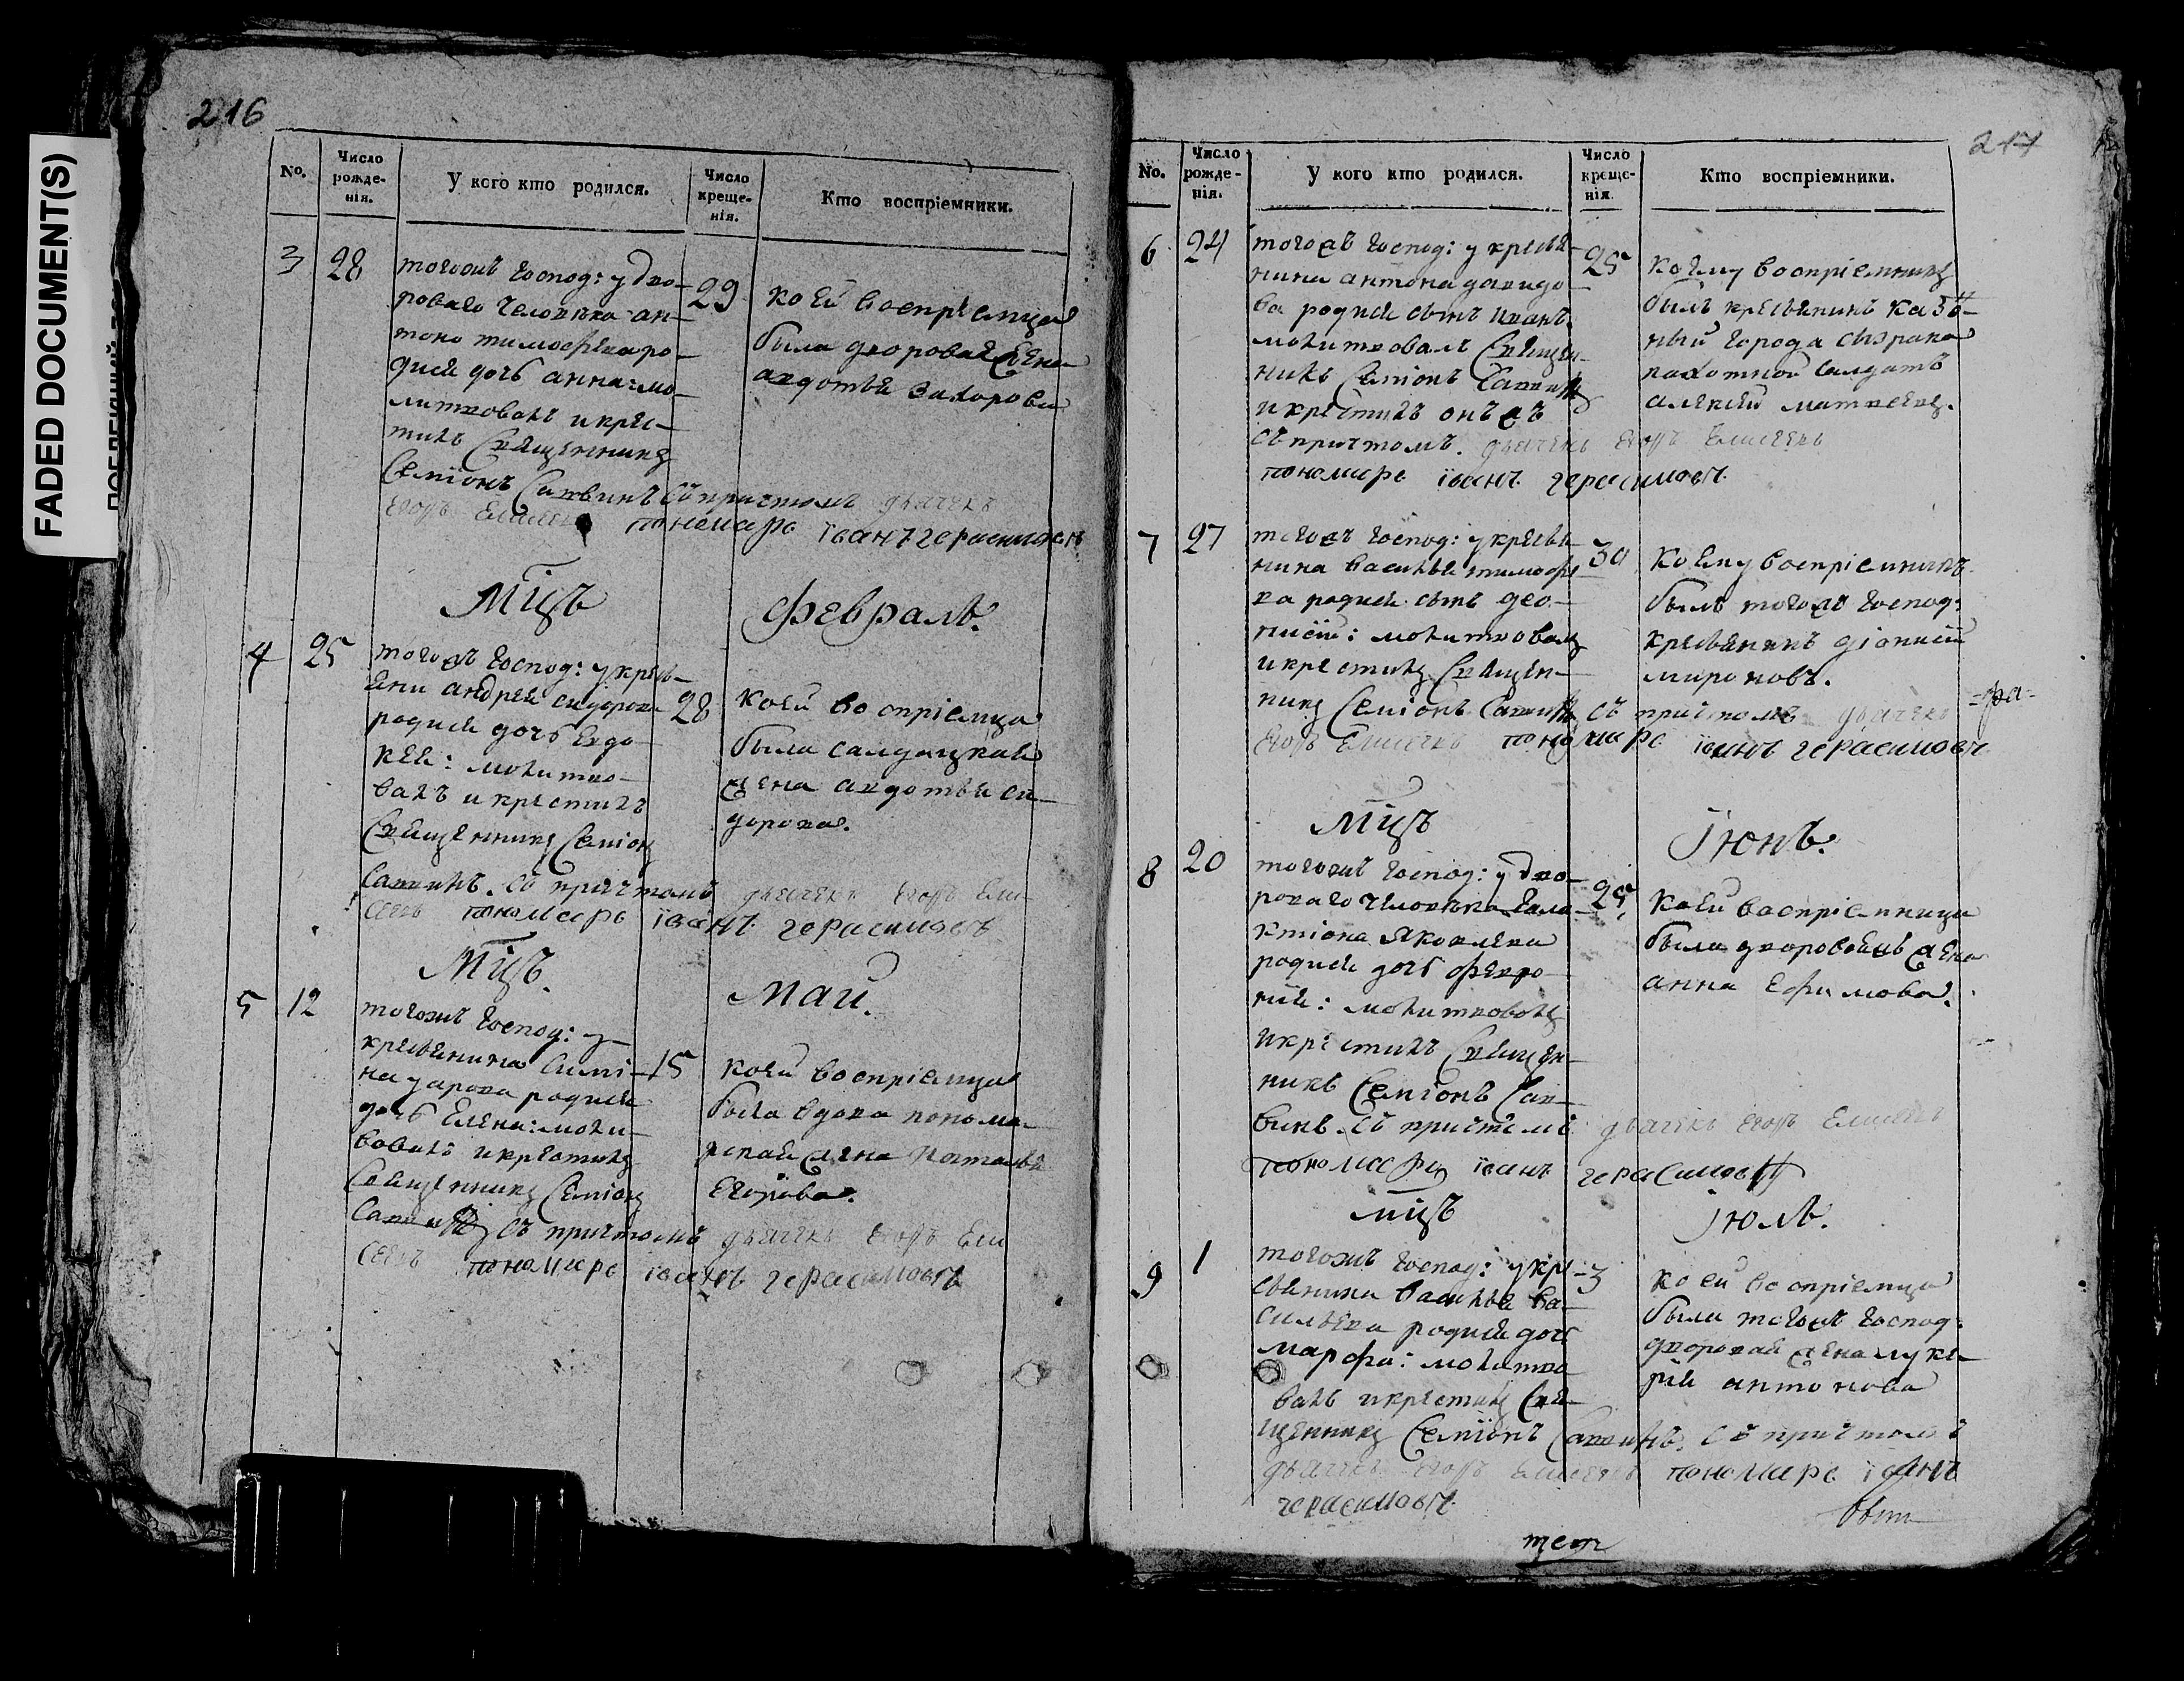 FADED DOCUMENT(S)
216
No.
Число рожде-нія.
У кого кто родился.
Число креще-нія.
Кто воспріемники.
3
28
тогожъ господ: у дво-
роваго человека ан-
тона тимофеева ро-
дися дочь анна: мо-
литвовалъ и крес-
тилъ Священникъ
Семіонъ Саввинъ съ притчомъ дьячекъ
Егоръ Елисеевъ пономарь іванъ герасимовъ
29
коей воспріемца
была дворовая жена
авдотья захорова
Мцъ
февраль.
4
25
тогожъ господ: у кресь-
яни андрея сидорова
родися дочь Евдо-
кея: молитво-
валъ и крестилъ
Священникъ Семіонъ
Саввинъ. съ притчомъ дьячекъ Егоръ Ели-
сеевъ пономарь іванъ герасимовъ
28
коей воспріемца
была салдацкая
жена авдотья си-
дорова.
Мцъ.
май.
5
12
тогожъ господ: у
кресьянина Симі-
на уарова родися
дочь Елена: моли-
вовалъ и крестилъ
Священникъ Семіонъ
Саввинъ съ притчомъ дьячекъ Егоръ Ели
сеевъ пономарь іванъ герасимовъ
15
коей воспріемца
была вдова понома-
рская жена наталья
Егорова.
217
No.
Число рожде-нія.
У кого кто родился.
Число креще-нія.
Кто воспріемники.
6
24
тогожъ господ: у кресья-
нина антона давидо-
ва родися сынъ иванъ.
молитвовалъ Священ-
никъ Семіонъ Саввинъ
и крестилъ онъ жъ
съ притчомъ. дьячекъ Егоръ Елисеевъ
пономарь іванъ герасимовъ
25
коему воспріемникъ
былъ кресьянинъ
города сызрана
пахотной салдатъ
алексей матвеевъ.
7
27
тогожъ господ: у кресья-
нина василья тимофе-
ва родися сынъ део-
нисій: молитвовалъ
и крестилъ Священ-
никъ Семіонъ Саввинъ съ притчомъ дьячекъ
Егоръ Елисеевъ пономарь іванъ герасимовъ
30
коему воспріемникъ
былъ тогожъ господ:
кресьянинъ діонисій
мироновъ.
-ра-
Мцъ
Іюнь.
8
20
тогожъ господ: у дво-
роваго человека гала-
ктіона Яковлева
родися дочь февро-
нія: молитвовалъ
и крестилъ Священ-
никъ Семіонъ Сав-
винъ. съ притчомъ дьячекъ Егоръ Елисеевъ
пономарь іванъ герасимовъ
25
коей воспріемница
была жена
анна Ефимова.
мцъ
Іюль.
9
1
тогожъ господ: у кре-
сьянина василья ва-
сильева родися дочь
марфа: молитво
валъ и крестилъ Свя-
щенникъ Семіонъ Саввинъ. съ притчомъ
дьячекъ Егоръ Елисеевъ пономарь іванъ
герасимовъ.
3
коей воспріемца
была тогожъ господ:
дворовая жена луке-
рія антонова